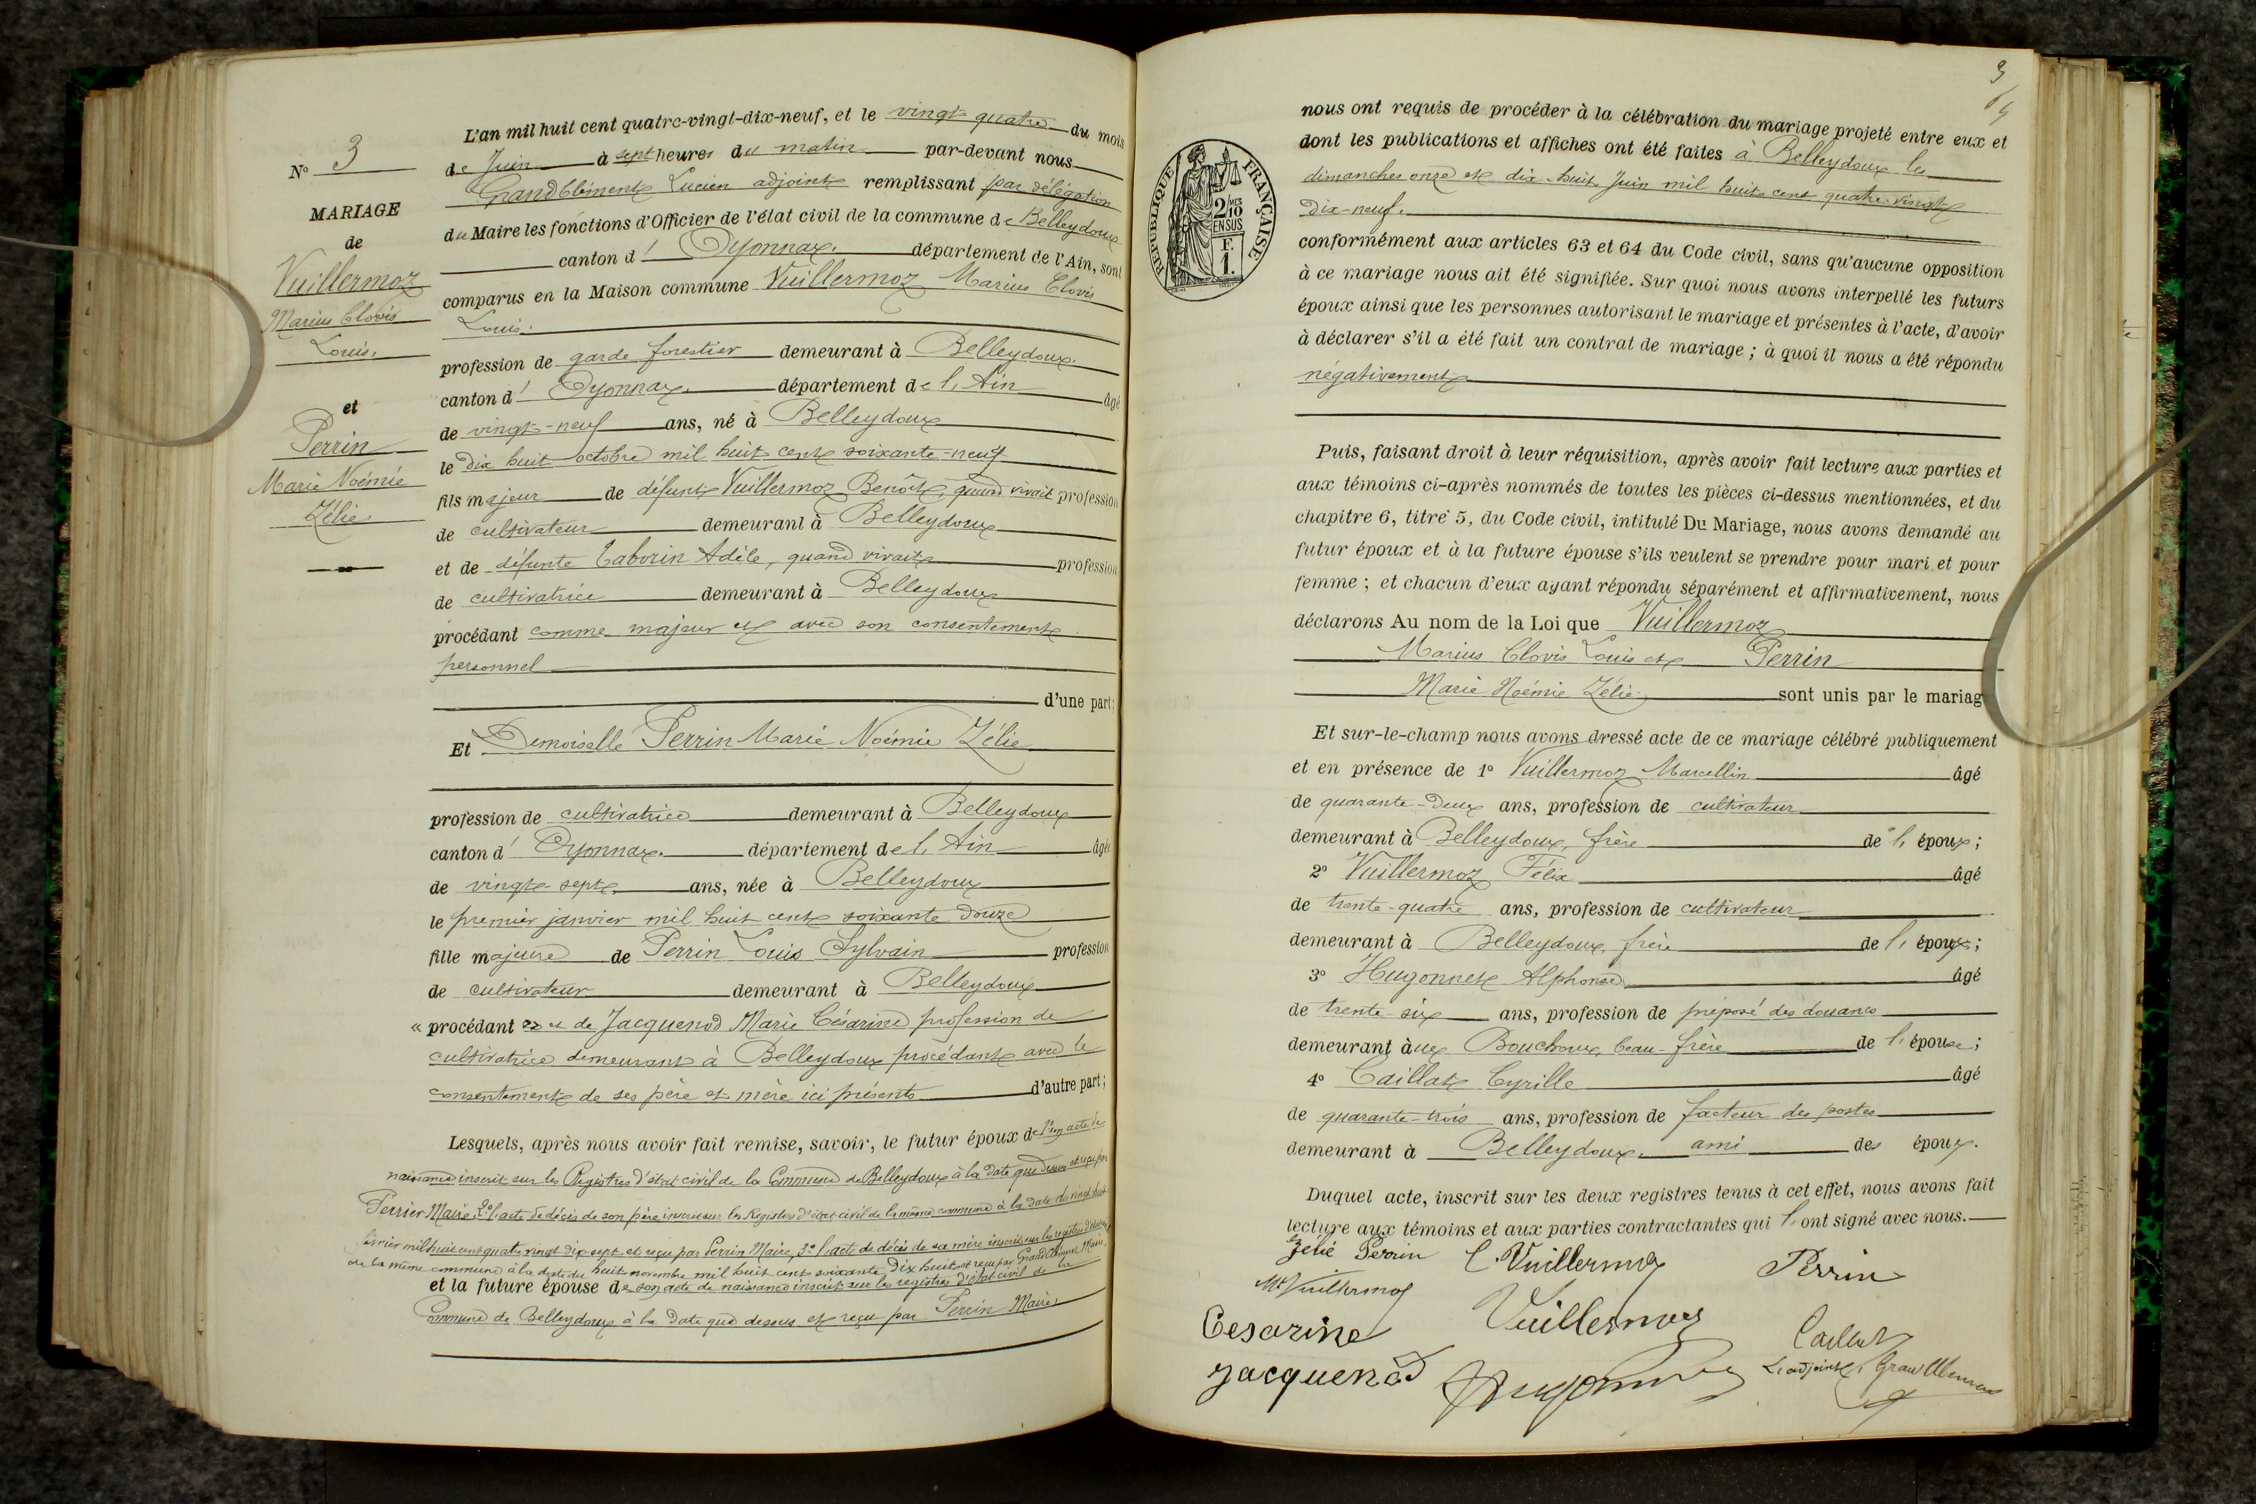 N° 3
MARIAGE
de
Vuillermoz
Marius Clovis
Louis.
et
Perrin
Marie Noémie
Zélie
L'an mil huit cent quatre-vingt-dix-neuf, et le vingt quatre du mois
de Juin à sept heures du matin par-devant nous
GrandClément Lucien adjoint remplissant par délégation
du Maire les fonctions d'Officier de l'état civil de la commune de Belleydoux
canton d' Oyonnax. département de l'Ain, sont
comparus en la Maison commune Vuillermoz Marius Clovis
Louis.
profession de garde forestier demeurant à Belleydoux.
canton d' Oyonnax. département de l'Ain âgé
de vingt-neuf ans, né à Belleydoux
le dix huit octobre mil huit cent soixante-neuf
fils majeur de défunt Vuillermoz Benoît, quand vivait profession
de cultivateur demeurant à Belleydoux
et de défunte Taborin Adèle, quand vivait profession
de cultivatrice demeurant à Belleydoux
procédant comme majeur et avec son consentement
personnel
d'une part;
Et Demoiselle Perrin Marie Noémie Zélie
profession de cultivatrice demeurant à Belleydoux
canton d' Oyonnax. département de l'Ain âgée
de vingt-sept ans, née à Belleydoux
le premier janvier mil huit cent soixante douze
fille majeure de Perrin Louis Sylvain profession
de cultivateur demeurant à Belleydoux
« procédant » et de Jacquenod Marie Césarine profession de
cultivatrice demeurant à Belleydoux procédant avec le
consentement de ses père et mère ici présents d'autre part;
Lesquels, après nous avoir fait remise, savoir, le futur époux de 1° son acte de
naissance inscrit sur les Registres d'état civil de la Commune de Belleydoux à la date que dessus et reçu par
Perrier Maire, 2° l'acte de décès de son père inscrit sur les Registres d'état civil de la même commune à la date du vingt huit
février mil huit cent quatre vingt dix sept et reçu par Perrin Maire, 3° l'acte de décès de sa mère inscrit sur les registres d'état civil
de la même commune à la date du huit novembre mil huit cent soixante dix huit et reçu par GrandClément Maire
et la future épouse de son acte de naissance inscrit sur les registres d'état civil de la
Commune de Belleydoux à la date que dessus et reçu par Perrin Maire.
3
nous ont requis de procéder à la célébration du mariage projeté entre eux et
dont les publications et affiches ont été faites à Belleydoux les
dimanches onze et dix-huit Juin mil huit cent quatre-vingt
dix-neuf.
RÉPUBLIQUE FRANÇAISE
2/10
EN SUS
F.
1.
conformément aux articles 63 et 64 du Code civil, sans qu'aucune opposition
à ce mariage nous ait été signifiée. Sur quoi nous avons interpellé les futurs
époux ainsi que les personnes autorisant le mariage et présentes à l'acte, d'avoir
à déclarer s'il a été fait un contrat de mariage ; à quoi il nous a été répondu
négativement
Puis, faisant droit à leur réquisition, après avoir fait lecture aux parties et
aux témoins ci-après nommés de toutes les pièces ci-dessus mentionnées, et du
chapitre 6, titre 5, du Code civil, intitulé Du Mariage, nous avons demandé au
futur époux et à la future épouse s'ils veulent se prendre pour mari et pour
femme ; et chacun d'eux ayant répondu séparément et affirmativement, nous
déclarons Au nom de la Loi que Vuillermoz
Marius Clovis Louis et Perrin
Marie Noémie Zélie. sont unis par le mariag
Et sur-le-champ nous avons dressé acte de ce mariage célébré publiquement
et en présence de 1° Vuillermoz Marcellin âgé
de quarante-deux ans, profession de cultivateur
demeurant à Belleydoux, frère de l'époux;
2° Vuillermoz Félix âgé
de trente-quatre ans, profession de cultivateur
demeurant à Belleydoux, frère de l'époux;
3° Hugonnet Alphonse âgé
de trente-six ans, profession de préposé des douanes
demeurant aux Bouchoux, beau-frère de l'épouse;
4° Caillat Cyrille âgé
de quarante-trois ans, profession de facteur des postes
demeurant à Belleydoux. ami des époux.
Duquel acte, inscrit sur les deux registres tenus à cet effet, nous avons fait
lecture aux témoins et aux parties contractantes qui l'ont signé avec nous.
Zelie Perrin C. Vuillermoz Perrin
Mt Vuillermoz
Vuillermoz
Cesarine
Jacquenod
Hugonnet
Caillat
L'adjoint, GrandClément